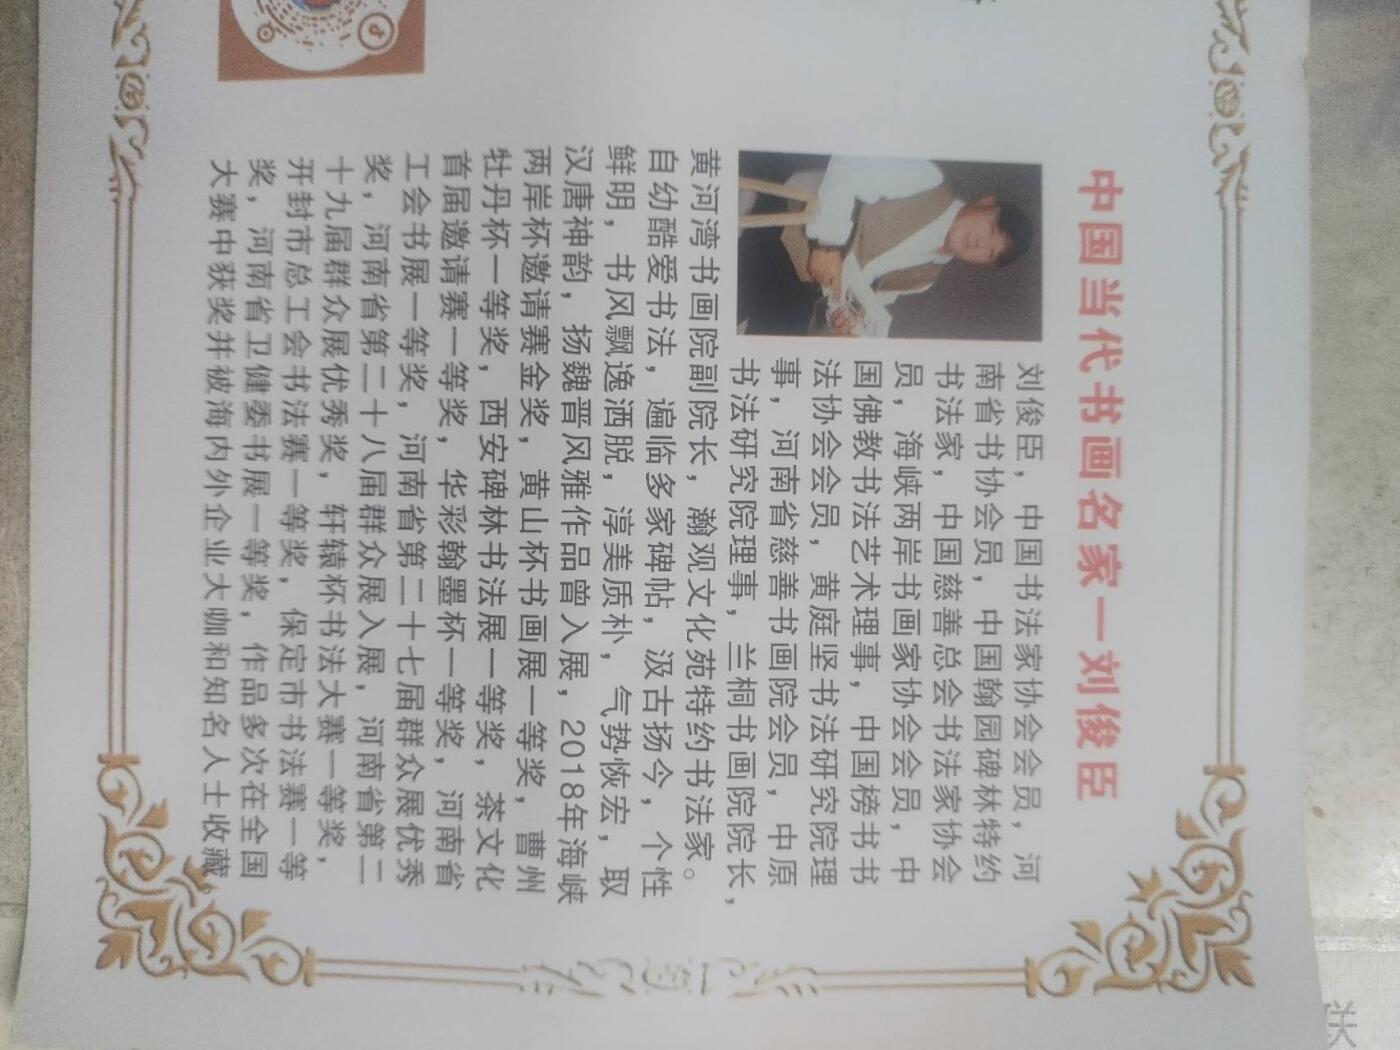 中国当代书画名家—刘俊臣
刘俊臣，中国书法家协会会员，河
南省书协会员，中国翰园碑林特约
书法家，中国慈善总会书法家协会
员，海峡两岸书画家协会会员，中
国佛教书法艺术理事，中国榜书书
法协会会员，黄庭坚书法研究院理
事，河南省慈善书画院会员，中原
书法研究院理事，兰桐书画院院长，
黄河湾书画院副院长，瀚观文化苑特约书法家。
自幼酷爱书法，遍临多家碑帖，汲古扬今，个性
鲜明，书风飘逸洒脱，淳美质朴，气势恢宏，取
汉唐神韵，扬魏晋风雅作品曾入展，2018年海峡
两岸杯邀请赛金奖，黄山杯书画展一等奖，曹州
牡丹杯一等奖，西安碑林书法展一等奖，茶文化
首届邀请赛一等奖，华彩翰墨杯一等奖，河南省
工会书展一等奖，河南省第二十七届群众展优秀
奖，河南省第二十八届群众展入展，河南省第二
十九届群众展优秀奖，轩辕杯书法大赛一等奖，
开封市总工会书法赛一等奖，保定市书法赛一等
奖，河南省卫健委书展一等奖，作品多次在全国
大赛中获奖并被海内外企业大咖和知名人士收藏。
联